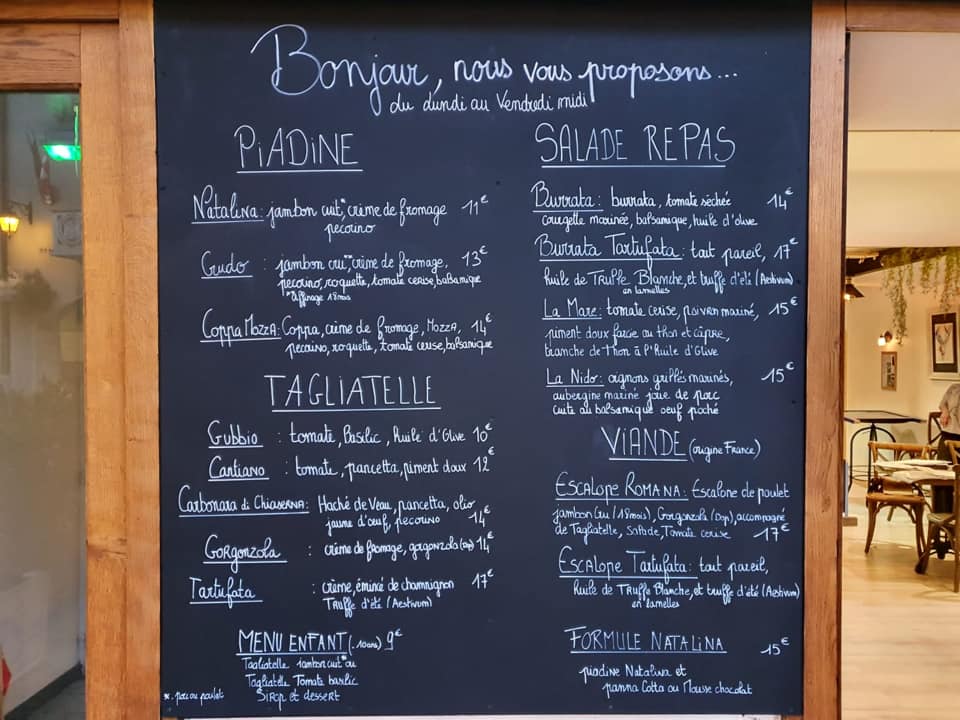 Bonjour, nous vous proposons...
du Lundi au Vendredi midi
PiADiNE
Natalina : jambon cuit*, crème de fromage 11€
pecorino
Guido : jambon cru**, crème de fromage, 13€
pecorino, roquette, tomate cerise, balsamique
**affinage 18 mois
Coppa Mozza : Coppa, crème de fromage, Mozza, 14€
pecorino, roquette, tomate cerise, balsamique
TAGLIATELLE
Gubbio : tomate, Basilic, Huile d'Olive 10€
Cantiano : tomate, pancetta, piment doux 12€
Carbonara di Chiaserna : Haché de Veau, pancetta, olio
jaune d'oeuf, pecorino 14€
Gorgonzola : crème de fromage, gorgonzola (Dop) 14€
Tartufata : crème, émincé de champignon 17€
Truffe d'été (Aestivum)
MENU ENFANT (-10ans) 9€
Tagliatelle jambon cuit* ou
Tagliatelle Tomate basilic
Sirop et dessert
*: porc ou poulet
SALADE REPAS
Burrata : burrata, tomate séchée 14€
courgette marinée, balsamique, huile d'olive
Burrata Tartufata : tout pareil, 17€
huile de Truffe Blanche, et truffe d'été (Aestivum)
en lamelles
La Mare : tomate cerise, poivron mariné, 15€
piment doux farcie au thon et câpre,
tranche de Thon à l'Huile d'Olive
La Nido : oignons grillés marinés, 15€
aubergine mariné joue de porc
cuite au balsamique oeuf poché
ViANDE (origine France)
Escalope Romana : Escalope de poulet
jambon (cru /18mois), Gorgonzola (Dop), accompagné
de Tagliatelle, Salade, Tomate cerise 17€
Escalope Tartufata : tout pareil,
huile de Truffe Blanche, et truffe d'été (Aestivum)
en lamelles
FORMULE NATALINA 15€
piadine Natalina et
panna Cotta ou Mousse chocolat